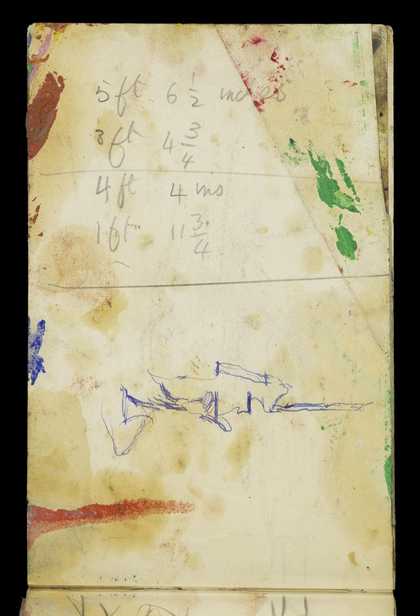 5 ft 6 1/2 inches
3 ft 4 3/4
4 ft 4 ins
1 ft 11 3/4